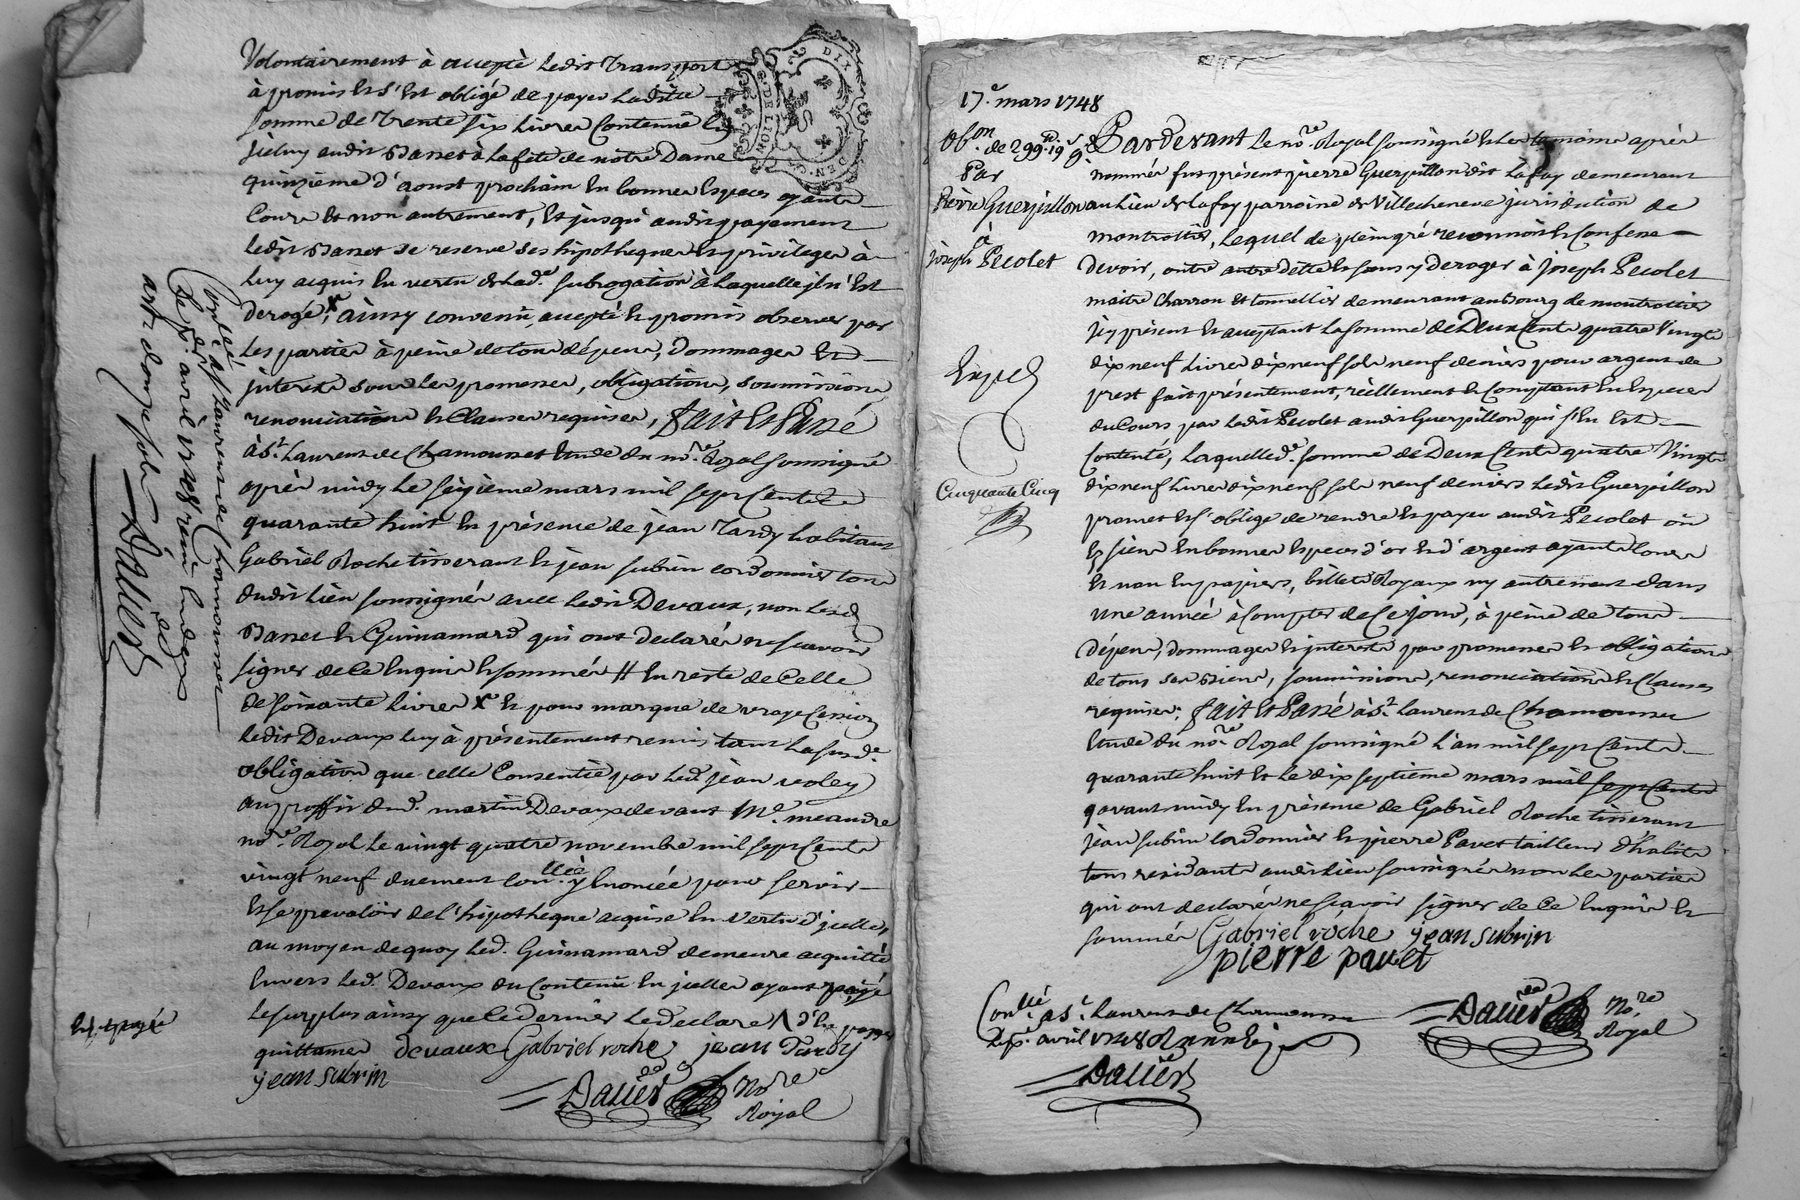 Volontairement à accepté ledit Transport
à promis et s'est obligé de payer laditte
somme de Trente six Livres Contenüe En
jceluy audit Basset à la fete de notre Dame
quinzieme d'aoust prochain En bonnes Especes ayants
Cours Et non autrement, Et jusqu'audit payement
ledit Basset se reserve ses hipotheques Et privileges à
luy acquis En vertu de lad.e subrogation à laquelle jl n'Est
derogé, x ainsy convenu, accepté Et promis observer par
les parties à peine de tous dépens, Dommages Et
jnterets sous les promesses, obligations, soumissions
renonciations Et Clauses requises, fait Et Passé
à S.t Laurent de Chamousset Etude du no.re Royal soussigné
après midy le seizieme mars mil sept Cents
quarante huit En présence de jean Tardy habitant
Gabriel Roche tisserant Et jean subrin cordonnier tous
dudit Lieu soussignés avec ledit Devaux, non lesd.
Basset Et Guinamard qui ont declarés ne scavoir
signer de ce Enquis Et sommés // En reste de Celle
de soixante Livres x Et pour marque de vraye Cession
ledit Devaux luy à présentement remis tant la susd.e
obligation que celle Consentie par led. jean voley
au proffit dud. martin Devaux devant M.e meandre
no.re Royal le vingt quatre novembre mil sept Cents
vingt neuf duement Con.llée y Enoncée pour servir
Et se prevaloir de l'hipotheque acquise En vertu d'jcelles,
au moyen de quoy led. Guinamard demeure acquitté
Envers led. Devaux du Contenu En jcelles ayant payé
le surplus ainsy que ce dernier le declare
quittance devaux Gabriel roche jean Tardy
jean subrin
Dauier No.re
Royal
Con.llé à S.t Laurent de Chamousset
le p.er avril 1748 reçu
art. douze sols
Dauier
17.e mars 1748
Ob.on de 299.# 19.s 9.d
Par
Pierre Guerpillon
à
joseph Pecolet
Exped.
Cinquante Cinq
Pardevant le no.re Royal soussigné Et les temoins après
nommés fut présent pierre Guerpillon dit Lafay demeurant
au Lieu de Lafay parroisse de Villecheneve jurisdiction de
montrottier, Lequel de plein gré reconnoit Et Confesse
devoir, outre autre dette Et sans y deroger à joseph Pecolet
maitre Charron Et tonnellier demeurant au Bourg de montrottier
jcy présent Et acceptant la somme de Deux Cents quatre Vingt
dix neuf Livres dix neuf sols neuf deniers pour argent de
prest fait présentement, réellement Et Comptant En Especes
du Cours par ledit Pecolet audit Guerpillon qui s'En Est
Contenté, Laquelle d.e somme de Deux Cents quatre Vingt
dix neuf Livres dix neuf sols neuf deniers ledit Guerpillon
promet Et s'oblige de rendre Et payer audit Pecolet où
Es siens En bonnes Especes d'or Et d'argent ayants Cours
Et non En papiers, billets Royaux ny autrement dans
une année à Compter de Ce jour, à peine de tous
dépens, dommages Et jnterets par promesses Et obligations
de tous ses Biens, soumissions, renonciations Et Clauses
requises; fait Et Passé à S.t Laurent de Chamousset
Etude du no.re Royal soussigné L'an mil sept Cents
quarante huit Et le dix septieme mars mil sept Cents
avant midy En présence de Gabriel Roche tisserant
jean subrin Cordonnier Et pierre Pavet tailleur d'habits
tous residants audit Lieu soussignés non les parties
qui ont declarés ne scavoir signer de Ce Enquis Et
sommés Gabriel roche jean subrin
pierre pavet
Dauier No.re
Royal
Con.llé à S.t Laurent de Chamousset
le p.er avril 1748
Dauier